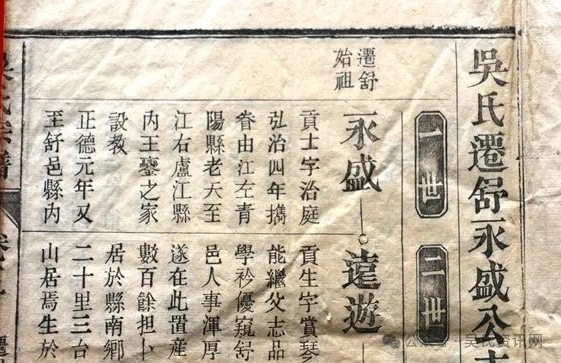 吳氏遷舒永盛公
一世
二世
遷舒
始祖
永盛
貢士字治庭
弘治四年攜
眷由江左青
陽縣老天至
江右盧江縣
內王鑾之家
設教
正德元年又
至舒邑縣內
遠遊
貢生字賞琴
能繼父志品
學衿優窺舒
邑人事渾厚
遂在此置產
數百餘担卜
居於縣南鄉
二十里三台
山居焉生於
吳氏宗譜
公众号·吴氏资讯网